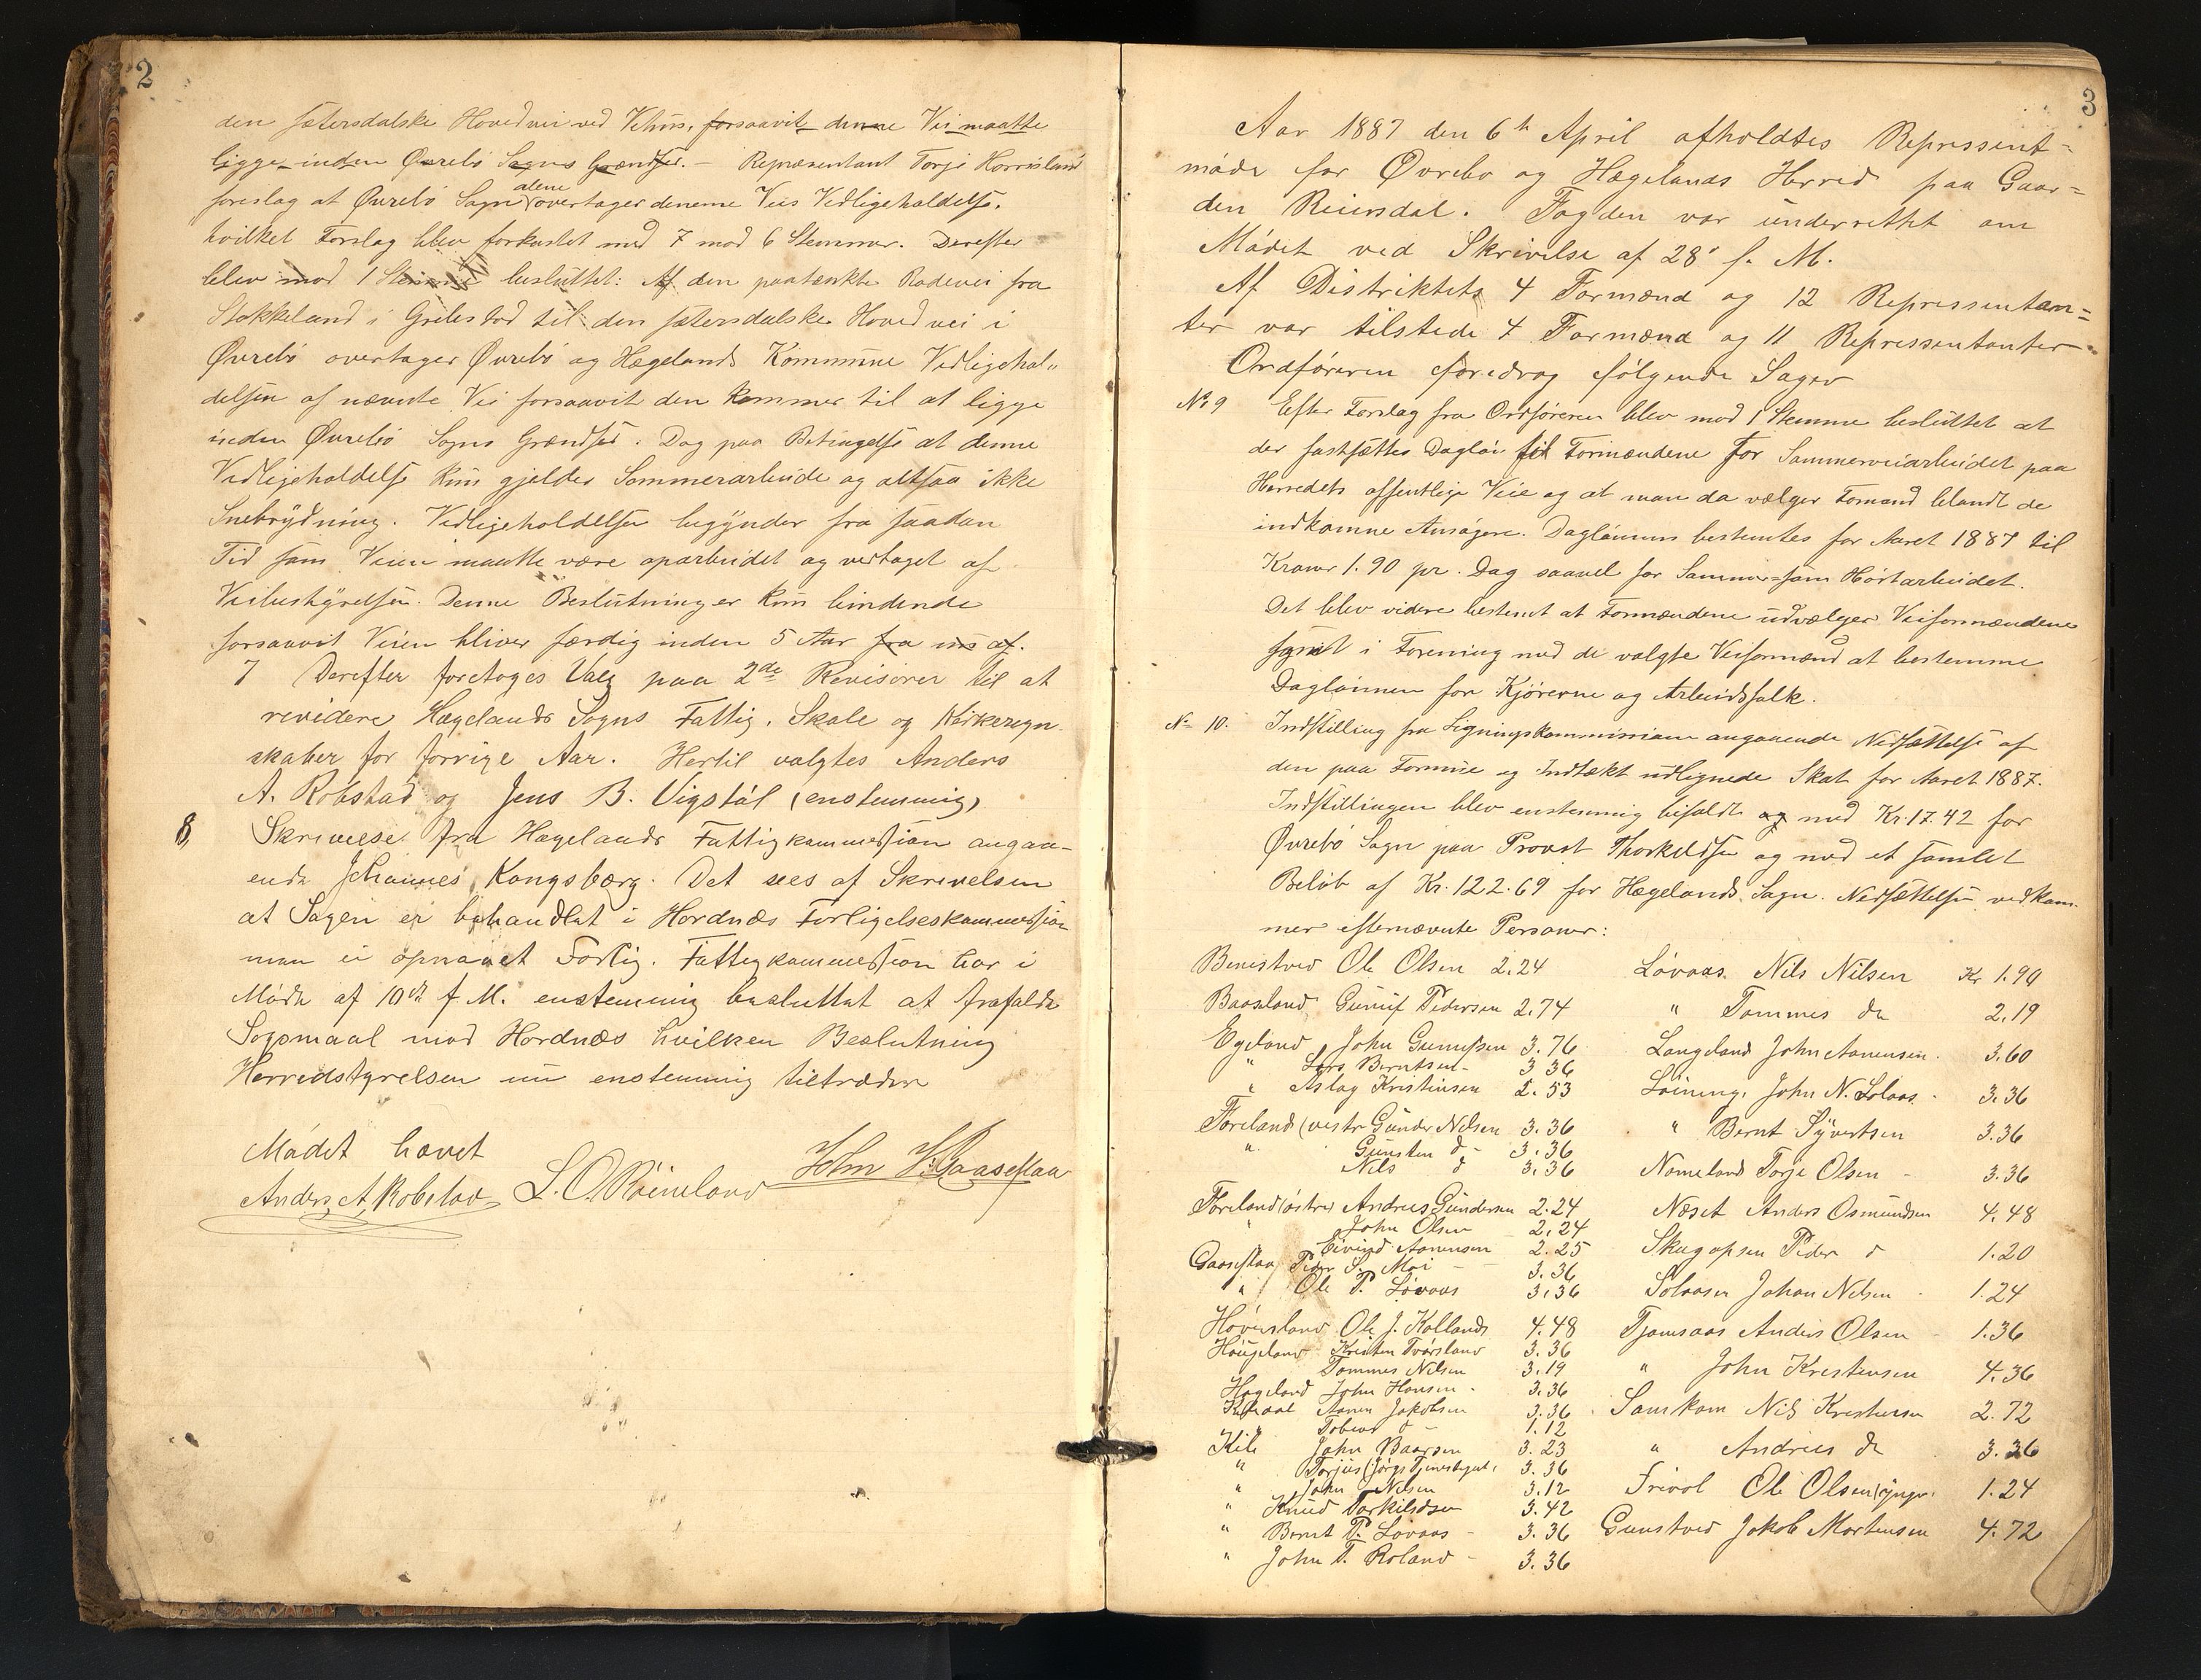 2
den sætersdalske Hovedvei ved Vehus, forsaavit denne Vei maatte
ligge inden Øvrebø Sogns Grændser. – Repræsentant Torje Horrisland
foreslog at Øvrebø Sogn alene overtager denne Veis Vedligeholdelse,
hvilket Forslag blev forkastet med 7 mod 6 Stemmer. Derefter
blev mod 1 Stemme besluttet: Af den paatænkte Rodevei fra
Stokkeland i Grebstad til den sætersdalske Hovedvei i
Øvrebø overtager Øvrebø og Hægelands Kommune Vedligehol„
delsen af nævnte Vei forsaavit den kommer til at ligge
inden Øvrebø Sogns Grændser. Dog paa Betingelse at denne
Vedligeholdelse kun gjelder Sommerarbeide og altsaa ikke
Snebrydning. Vedligeholdelsen begynder fra saadan
Tid som Veien maatte være oparbeidet og vedtaget af
Veibestyrelsen. Denne Beslutning er kun bindende
forsaavit Veien bliver færdig inden 5 Aar fra nu af.
7 Derefter foretoges Valg paa 2de Revisorer til at
revidere Hægelands Sogns Fattig, Skole og Kirkeregn
skaber for forrige Aar. Hertil valgtes Anders
A. Robstad og Jens B. Vigstøl (enstemmig)
8, Skrivelse fra Hægelands Fattigkommession angaa-
ende Johannes Kongsbærg. Det sees af Skrivelsen
at Sagen er behandlet i Hordnæs Forligelseskommession
men ei opnaaet Forlig. Fattigkommession har i
Møde af 10de f M. enstemmig besluttet at frafalde
Sogsmaal mod Hordnæs hvilken Beslutning
Herredstyrelsen nu enstemmig tiltræder
Mødet hævet
Anders A, Robstad S. O. Røineland John H. Gaaseflaa
3
Aar 1887 den 6h April afholdtes Repressent=
møde for Øvrebø og Hægelands Herred paa Gaar=
den Reiersdal. Fogden var underrettet om
Mødet ved Skrivelse af 28' f. M.
Af Distriktets 4 Formænd og 12 Repressentan=
ter var tilstede 4 Formænd og 11 Repressentanter.
Ordføreren foredrog følgende Sager
No 9 Efter Forslag fra Ordføreren blev mod 1 Stemme besluttet at
der fastsættes Dagløn til Formændene for Sommerveiarbeidet paa
Herredets offentlige Veie og at man da vælger Formænd blandt de
indkomne Ansøgere. Daglønnen bestemtes for Aaret 1887 til
Kroner 1.90 pr. Dag saavel for Sommer- som Høstarbeidet.
Det blev videre bestemt at Formændene udvælger Veiformændene
samt i Forening med de valgte Veiformænd at bestemme
Daglønnen for Kjørerne og Arbeidsfolk.
No 10. Indstilling fra Ligningskommissionen angaaende Nedsættelse af
den paa Formue og Indtækt udlignede Skat for Aaret 1887.
Indstillingen blev enstemmig bifaldt og med Kr. 17.42 for
Øvrebø Sogn paa Provst Thorkildsen og med et samlet
Beløb af Kr. 122.69 for Hægelands Sogn. Nedsættelsen vedkom
mer efternævnte Personer:
Benestved Ole Olsen 2.24 Løvaas. Nils Nilsen Kr 1.90
Baasland, Gunuf Pedersen 2.74 " Tommes do 2.19
Egeland John Gunufsen 3.76 Langeland John Aanensen. 3.60
" Lars Berntsen - 3 36
" Aslag Kristensen 2.53 Løining, John N. Lolaas. 3.36
Føreland (vestre Gunder Nilsen 3.36 " Bernt Syvertsen 3.36
" Gunsten do - 3.36
Nils do 3.36 Nomeland Torje Olsen – 3.36
Føreland (østre) Andreas Gundersen 2.24 Næset Anders Osmundsen 4.48
" John Olsen 2.24
Eivind Aanensen 2.25 Skugopsen Peder do 1.20
Gaaseflaa Peder S. Moi – 3.36
" Ole P. Løvaas 3.36 Solaasen Johan Nilsen . 1.24
Hønesland Ole J. Kallands 4.48 Tjomsaas Anders Olsen 1.36
Haugeland Kristen Tvørsland 3.36
Tommes Nilsen 3.19 " John Kristensen 4.36
Hageland John Hansen . 3.36
Aanen Jakobsen 3.36 Samkom Nils Kristensen 2.72
Tobias do – 1.12
Kile John Baarsen 3.23 " Andreas do 3.36
" Torjus 3.36
" John Nilsen 3.12 Frivol Ole Olsen (yngr. 1.24
" Knud Torkildsen 3.42
" Bernt T. Løvaas – 3.36 Gunstved Jakob Mortensen 4.72
" John T. Roland – 3.36